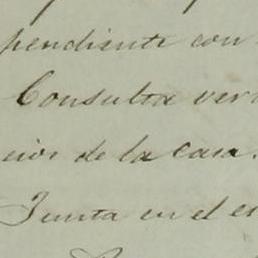 pendiente con
Consulta ver
de la casa.
Junta en el es